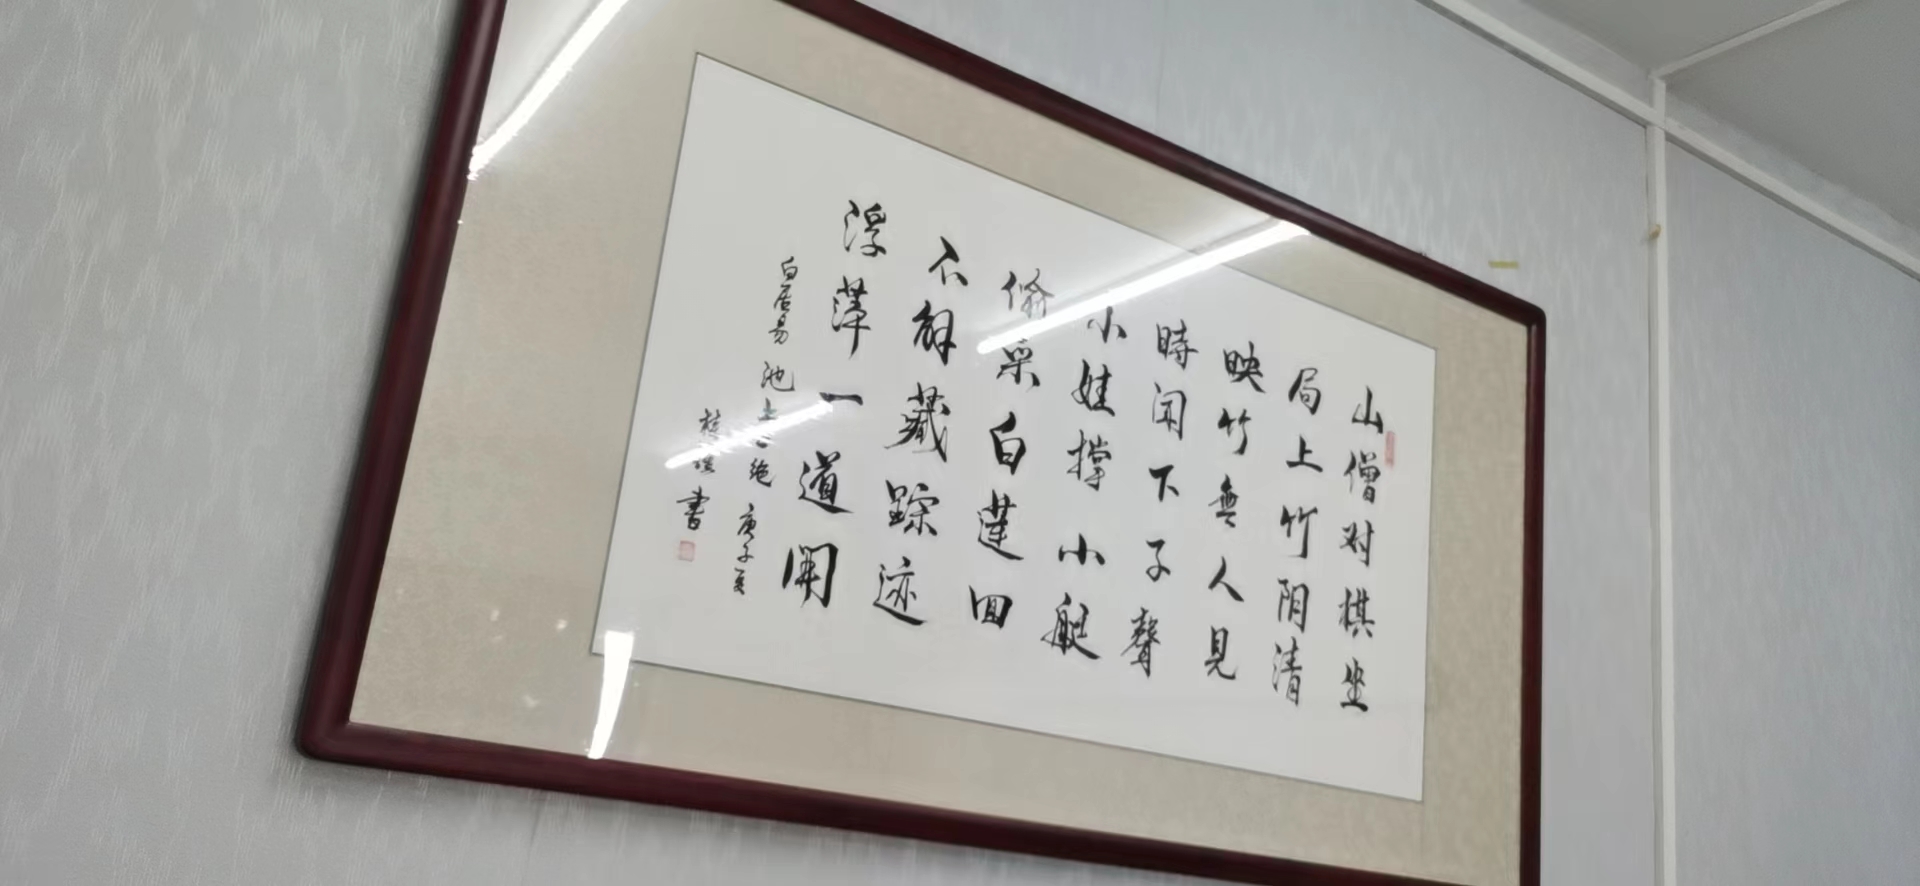 山僧对棋坐
局上竹阴清
映竹無人見
時闻下子聲
小娃撑小艇
偷采白莲回
不解藏踪迹
浮萍一道開
白居易池上二绝 庚子夏
書